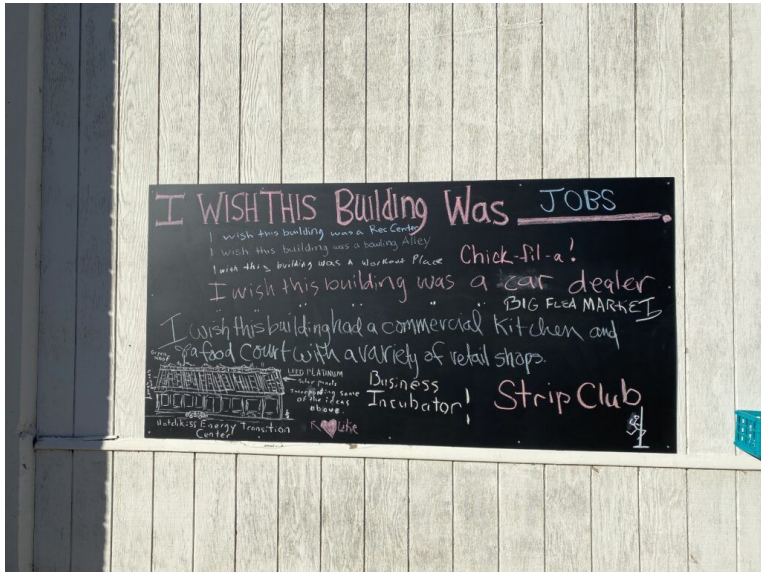 I WISH THIS Building Was JOBS
I wish this building was a Rec Center
I wish this building was a bowling Alley
I wish this building was a Workout Place
Chick-fil-a!
I wish this building was a car dealer
" " " " BIG FLEA MARKET
I wish this building had a commercial kitchen and
a food court with a variety of retail shops.
Green Roof
LEED PLATINUM
Solar panels
Incorporating some
of the ideas
above.
Business
Incubator!
Strip Club
Hotchkiss Energy Transition
Center